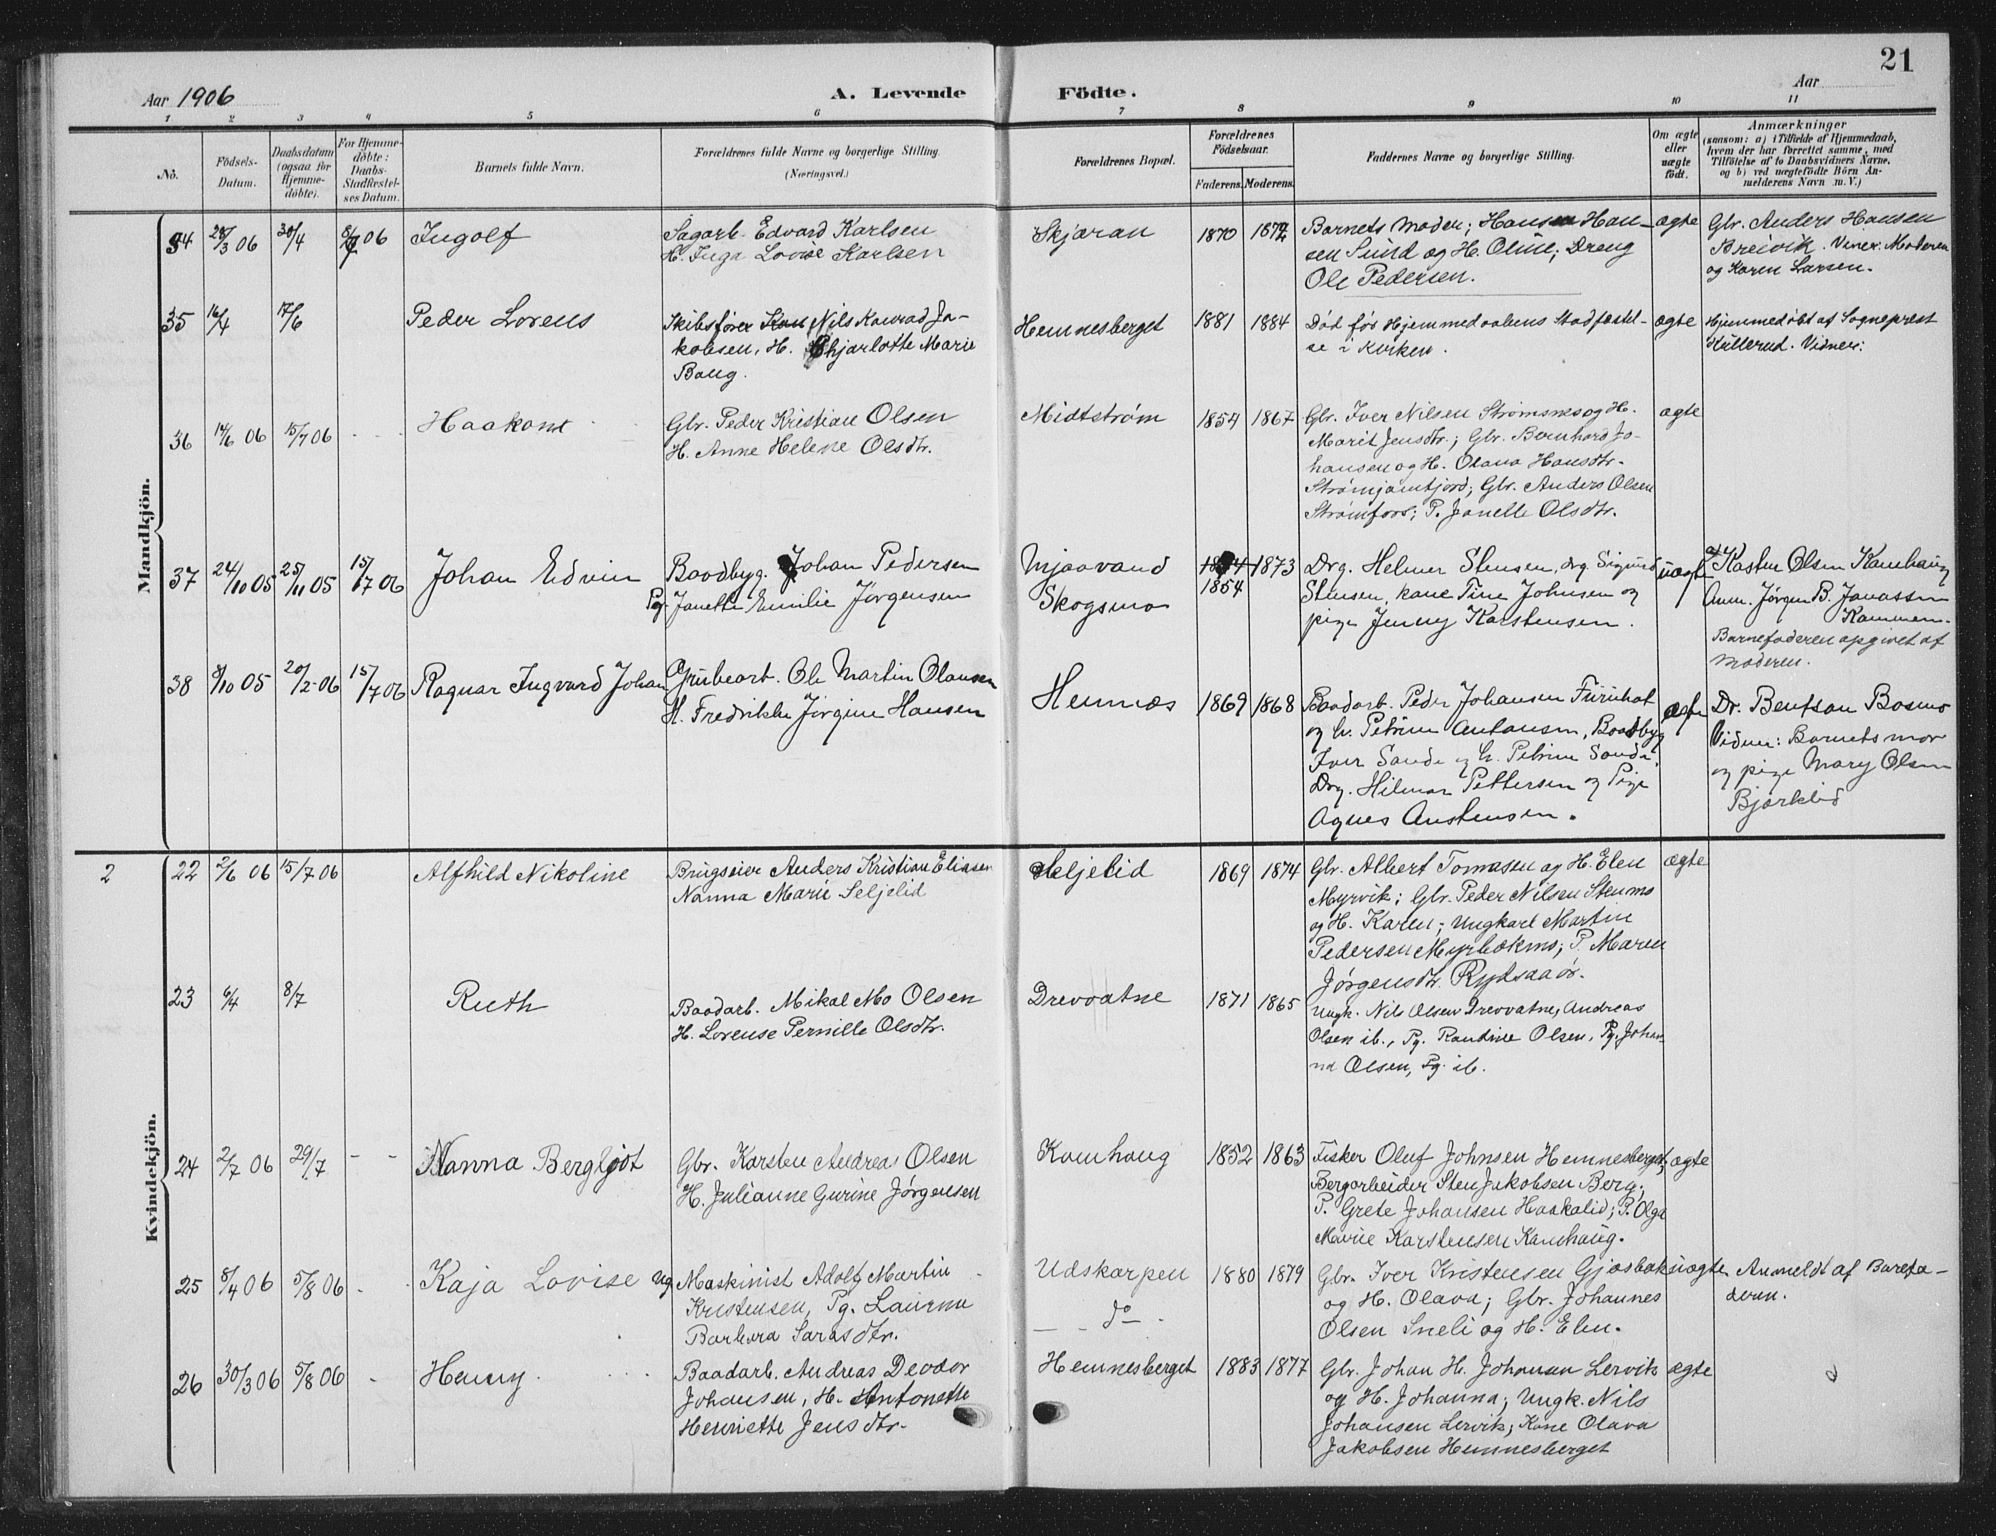 21
Aar 1906
A. Levende Födte.
Aar
1 2 3 4 5 6 7 8 9 10 11
No.
Födsels-Datum.
Daabsdatum (ogsaa for Hjemme-döbte).
For Hjemme-döbte: Daabs-Stadfæstel-ses Datum.
Barnets fulde Navn.
Forældrenes fulde Navne og borgerlige Stilling. (Næringsvei.)
Forældrenes Bopæl.
Forældrenes Födselsaar.
Faderens. Moderens.
Faddernes Navne og borgerlige Stilling.
Om ægte eller uægte født.
Anmærkninger
(saasom: a) i Tilfælde af Hjemmedaab,
hvem der har forrettet samme, med
Tilföielse af to Daabsvidners Navne.
og b) ved uægtefödte Börn An-
melderens Navn m. V.)
Mandkjön.
34 28/3 06 30/4 8/7 06 Ingolf
Sagarb. Edvard Karlsen
H. Inga Lovise Karlsen
Skjæran 1870 1872
Barnets moder; Hansen Han-
sen Sund og H. Oline; Dreng
Ole Pedersen.
ægte
Gbr. Anders Hansen
Breivik. Vidner: Moderen
og Karen Larsen.
35 16/4 17/6 Peder Lorens
Skibsfører Kon Nils Konrad Ja-
kobsen, H. Chjarlotte Marie
Baug.
Hemnesberget 1881 1884
Død før Hjemmedaabens Stadfæstel-
se i Kirken.
ægte
Hjemmedøbt af Sogneprest
Hüllerud. Vidner:
36 14/6 06 15/7 06 - - Haakon
Gbr. Peder Kristian Olsen
H. Anne Helene Olsdtr.
Midtstrøm 1854 1867
Gbr. Iver Nilsen Strømsnes og H.
Marit Jensdtr.; Gbr. Bernhard Jo-
hansen og H. Olava Hansdtr.
Strømjamtjord; Gbr. Anders Olsen
Strømfors; P. Janelle Olsdtr.
ægte
37 24/10 05 25/11 05 15/7 06 Johan Edvin
Baadbyg. Johan Pedersen
Pg. Janette Emilie Jørgensen
Mjaavand
Skogsmo
1854 1873
Drg. Helmer Stensen, drg Sigurd
Stensen, kone Tine Johnsen og
pige Jenny Karstensen.
uægte
Karsten Olsen Kamhaug
Anm. Jørgen B. Jonassen
Kammen.
Barnefaderen opgivet af
moderen.
38 8/10 05 20/2-06 15/7 06 Ragnar Ingvard Johan
Grubearb. Ole Martin Olausen
H. Fredrikke Jørgine Hansen
Hemnæs 1869 1868
Baadarb. Peder Johansen Furuhat
og h. Petrine Antonsen, Baadbyg
Iver Sande og h. Petrine Sande.
Drg. Hilmar Pettersen og Pige
Agnes Austensen.
ægte
Dr. Bentson Bosmo
Vidner: Barnets mor
og pige Mary Olsen
Bjerklid
Kvindekjön.
2 22 2/6 06 15/7 06 Alfhild Nikoline
Brugseier Anders Kristian Eliasen
Nanna Marie Seljelid
Seljelid 1869 1874
Gbr. Albert Tomasen og H. Elen
Myrvik; Gbr. Peder Nilsen Stenmo
og H. Karen; Ungkarl Martin
Pedersen Myrbækmo; P. Maren
Jørgensdtr. Rydsaaør.
ægte
23 6/4 8/7 Ruth
Baadarb. Mikal Mo Olsen
H. Lorense Pernille Olsdtr.
Drevvatne 1871 1865
Ungk. Nils Olsen Drevvatne, Andreas
Olsen ib., Pg. Randine Olsen, Pg. Johan
na Olsen, Pg. ib.
24 2/7 06 29/7 - - Nanna Bergljot
Gbr. Karsten Andreas Olsen
H. Julianne Gurine Jørgensen
Kamhaug 1852 1863
Fisker Oluf Johnsen Hemnesberget;
Bergarbeider Sten Jakobsen Berg;
P. Grete Johansen Haakalid; P. Olga
Marie Karstensen Kamhaug.
ægte
25 8/4 06 5/8 06 Kaja Lovise
Ug. Maskinist Adolf Martin
Kristensen, Pg. Laurense
Barbara Sarasdtr.
Udskarpen
- - do -
1880 1879
Gbr. Iver Kristensen Gjæsbak
og H. Olava; Gbr. Johannes
Olsen Sneli og H. Elen.
uægte
Anmeldt af Barnefa-
deren.
26 30/3 06 5/8 06 Henny
Baadarb. Andreas Deodor
Johansen, H. Antonette
Henriette Jensdtr.
Hemnesberget 1883 1877
Gbr. Johan H. Johansen Lervik
og H. Johanna; Ungk. Nils
Johansen Lervik; Kone Olava
Jakobsen Hemnesberget
ægte